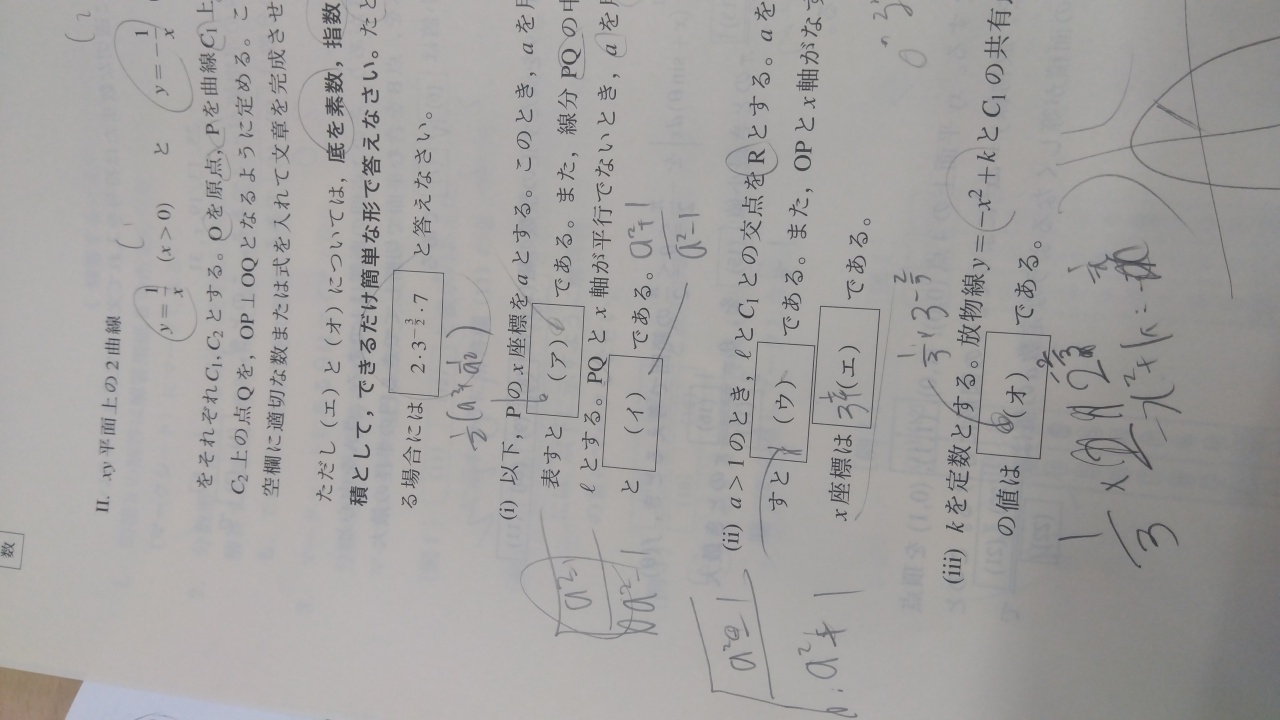 数
II. xy平面上の2曲線
y = 1/x (x > 0) と y = -1/x
をそれぞれC₁, C₂とする。Oを原点, Pを曲線C₁上
C₂上の点Qを, OP⊥OQとなるように定める。こ
空欄に適切な数または式を入れて文章を完成させ
ただし(エ)と(オ)については, 底を素数, 指数
積として, できるだけ簡単な形で答えなさい。たと
る場合には 2・3^{-3/2}・7 と答えなさい。
(i) 以下, Pのx座標をaとする。このとき, aを用
表すと (ア) である。また, 線分PQの中
ℓとする。PQとx軸が平行でないとき, aを用
と (イ) である。
(ii) a > 1のとき, ℓとC₁との交点をRとする。aを
すと (ウ) である。また, OPとx軸がなす
x座標は (エ) である。
(iii) kを定数とする。放物線y = -x² + kとC₁の共有
の値は (オ) である。
a²+1
a²-1
a²-1
1/3
-x²+k=